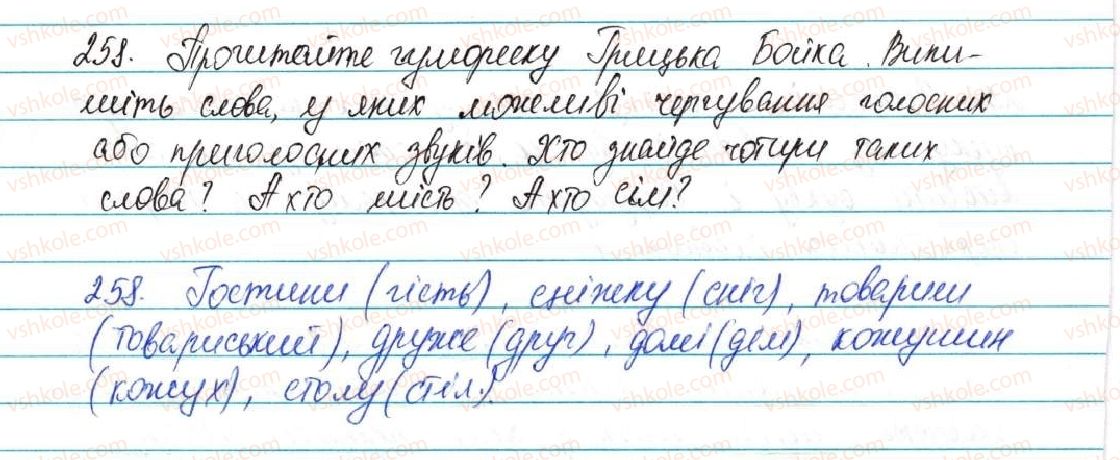 258. Прочитайте гумореску Грицька Бойка. Випи-
шіть слова, у яких можливі чергування голосних
або приголосних звуків. Хто знайде чотири таких
слова? А хто шість? А хто сім?
258. Гостини (гість), сніжку (сніг), товариш
(товариський), друже (друг), домі (дім), кожушин
(кожух), столу (стіл).